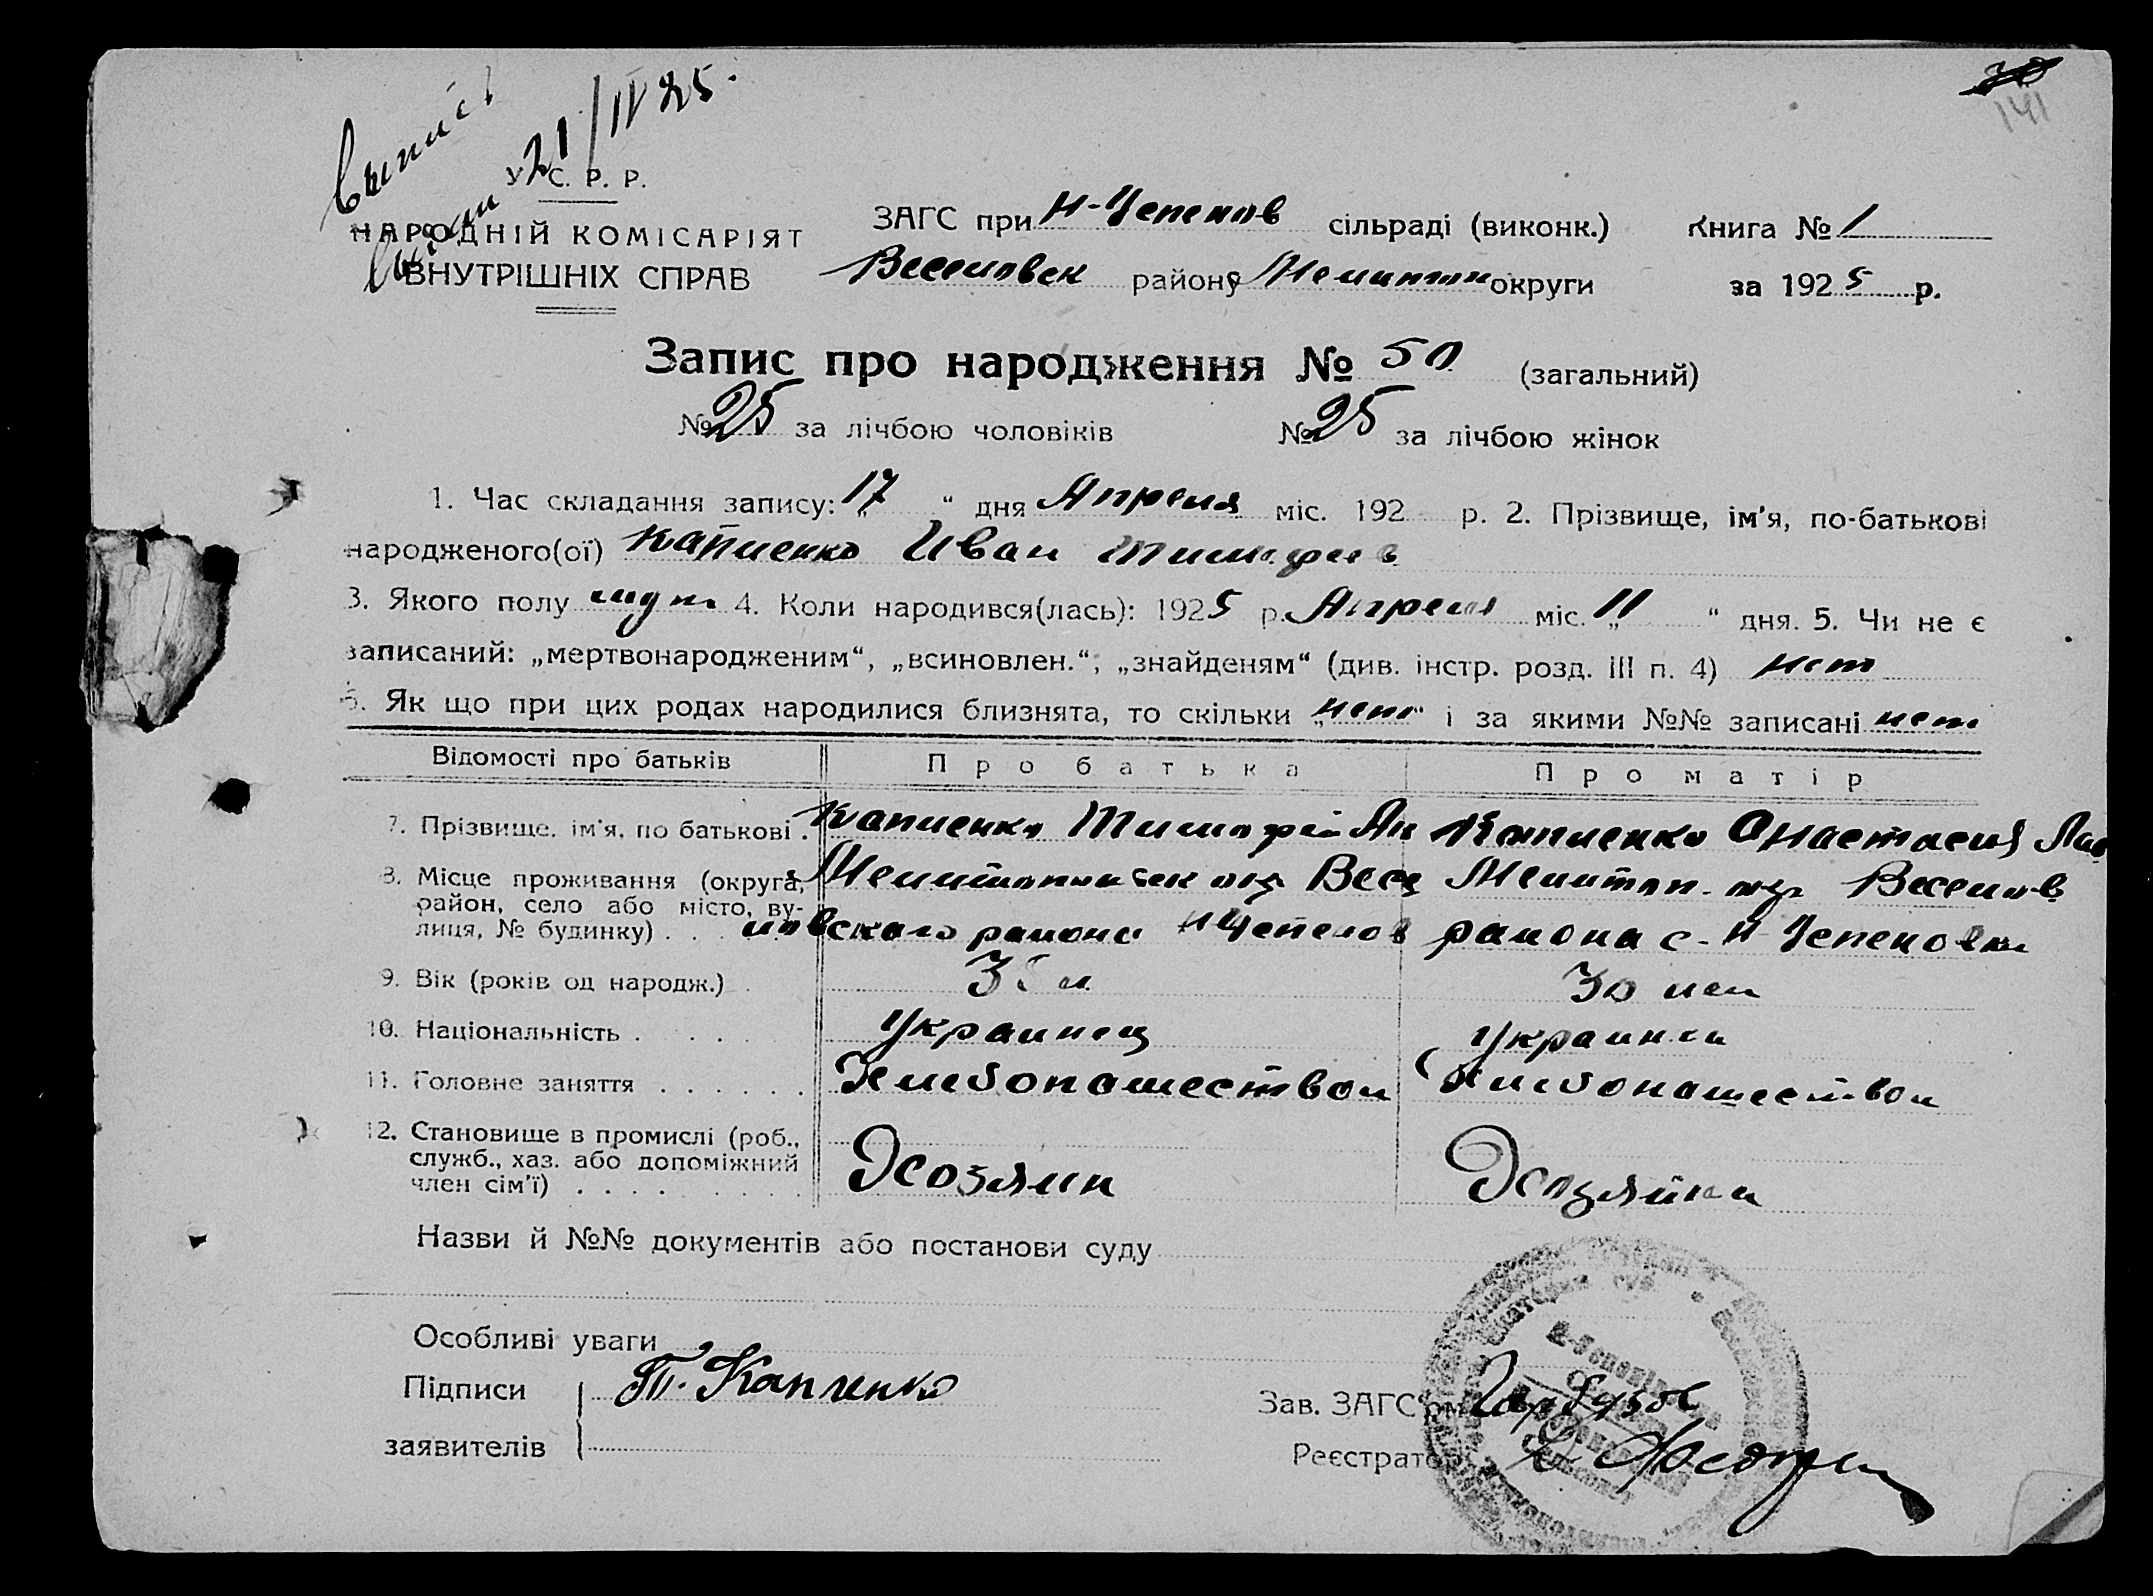 70
141
Выпис
21/IV 25.
У. С. Р. Р.
НАРОДНІЙ КОМІСАРІЯТ
ВНУТРІШНІХ СПРАВ
ЗАГС при Н-Чепелов сільраді (виконк.) Книга № 1
Веселовск району Мелитоп округи за 1925 р.
Запис про народження № 50 (загальний)
№ 25 за лічбою чоловіків № 25 за лічбою жінок
1. Час складання запису: „17“ дня Апреля міс. 192 р. 2. Прізвище, ім'я, по-батькові
народженого(ої) Капленко Иван Тимофеев
3. Якого полу муж 4. Коли народився(лась): 1925 р. Апреля міс. „11“ дня. 5. Чи не є
записаний: „мертвонародженим“, „всиновлен.“, „знайденям“ (див. інстр. розд. III п. 4) нет
6. Як що при цих родах народилися близнята, то скільки „нет“ і за якими №№ записані нет
Відомості про батьків Про батька Про матір
7. Прізвище, ім'я, по батькові . Капленко Тимофей Ан Капленко Анастасия
8. Місце проживання (округа, Мелитопольск окр Весе Мелитоп. окр Веселов
район, село або місто, ву-
лиця, № будинку) . . . ловского района Н Чепелов района с. Н Чепеловки
9. Вік (років од народж.) . 30 лет
10. Національність . . . . Украинец Украинка
11. Головне заняття . . . . . . Хлебопашеством Хлебопашеством
12. Становище в промислі (роб.,
служб., хаз. або допоміжний Хозяин Хозяйка
член сім'ї) . . . . . . . .
Назви й №№ документів або постанови суду
Особливі уваги
Підписи Т. Капленко
Зав. ЗАГС'ом Гарбузов
заявителів
Реєстратор